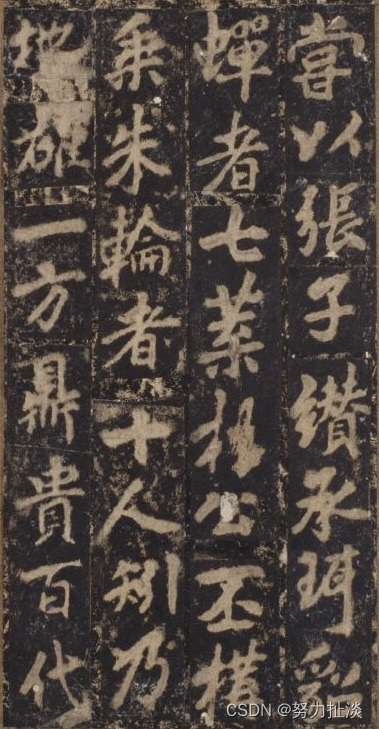 嘗以張子纘承珥貂
蟬者七葉楊公丕構
乘朱輪者十人矧乃
地雄一方鼎貴百代
CSDN @努力扯淡